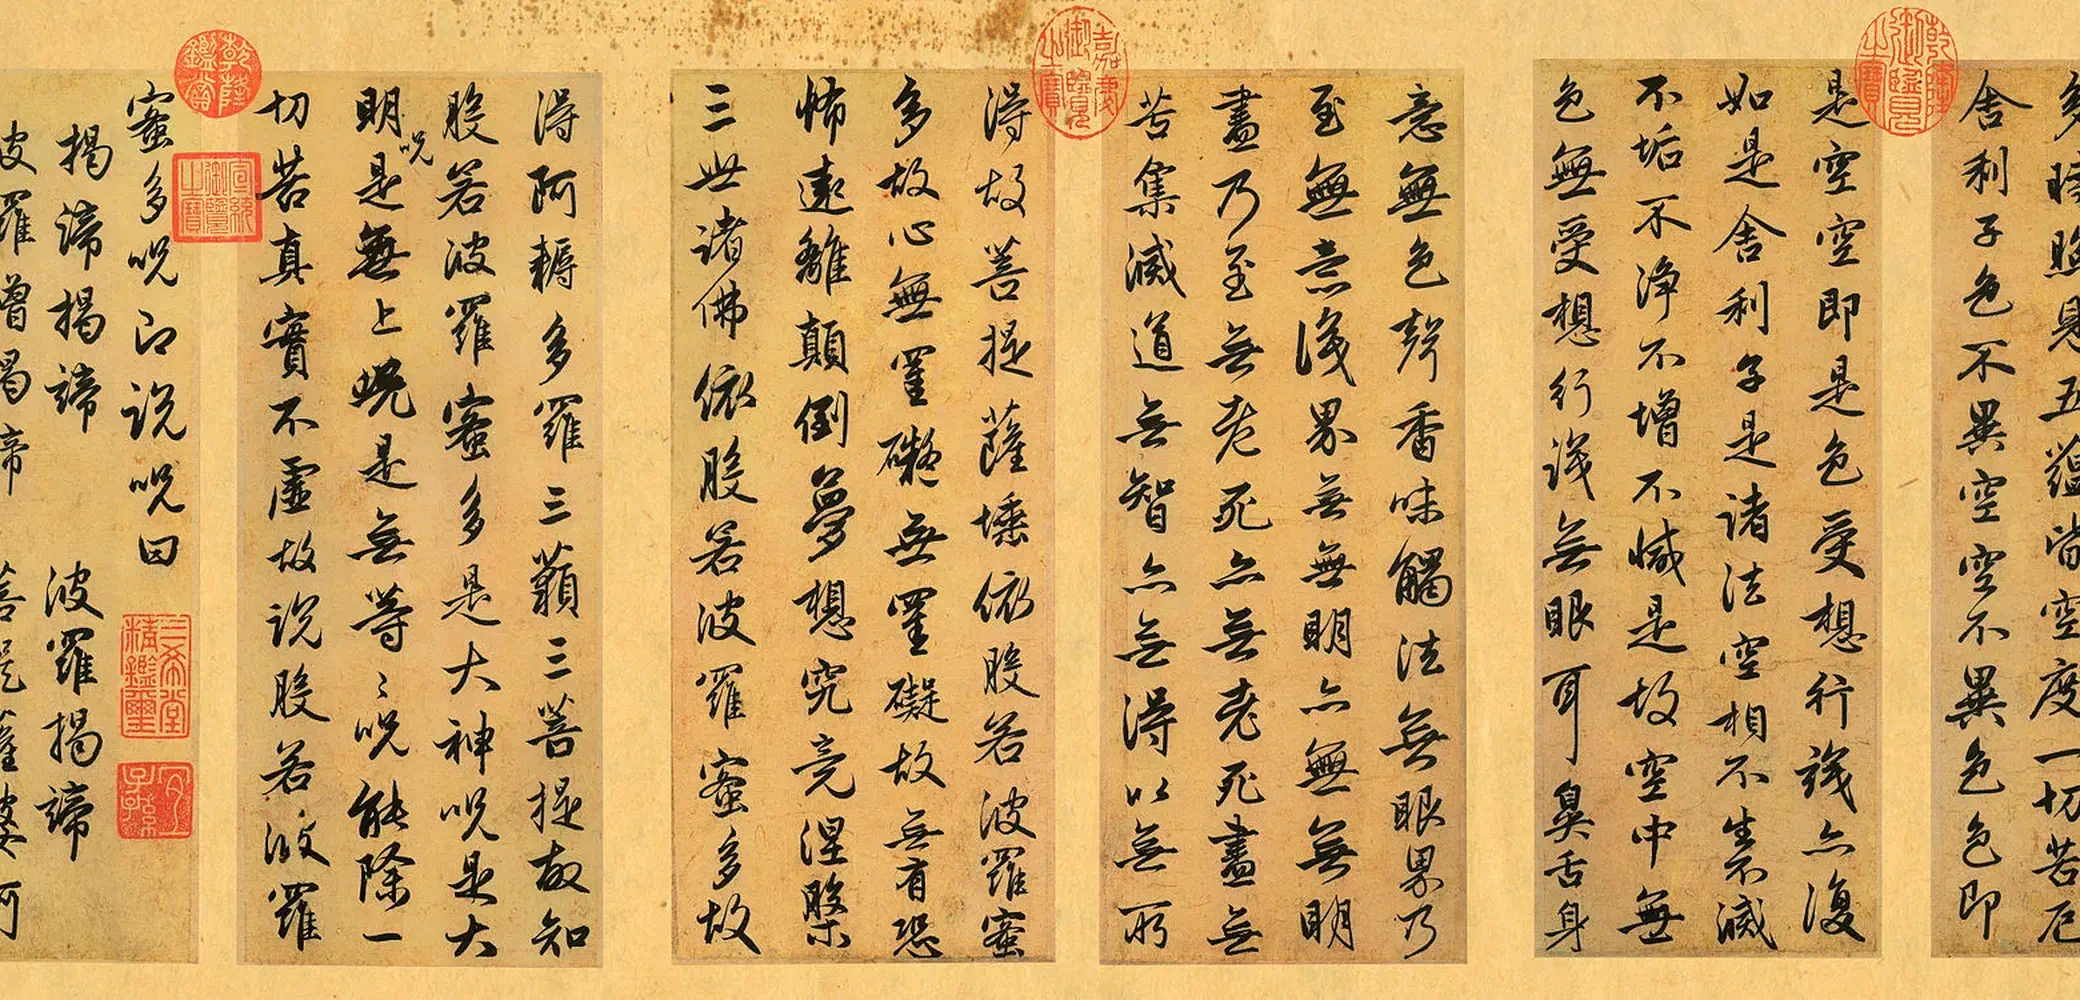 多時照見五蘊皆空度一切苦厄
舍利子色不異空空不異色色即
是空空即是色受想行識亦復
如是舍利子是諸法空相不生不滅
不垢不淨不增不減是故空中無
色無受想行識無眼耳鼻舌身
意無色聲香味觸法無眼界乃
至無意識界無無明亦無無明
盡乃至無老死亦無老死盡無
苦集滅道無智亦無得以無所
得故菩提薩埵依般若波羅蜜
多故心無罣礙無罣礙故無有恐
怖遠離顛倒夢想究竟涅槃
三世諸佛依般若波羅蜜多故
得阿耨多羅三藐三菩提故知
般若波羅蜜多是大神呪是大
明呪是無上呪是無等〻呪能除一
切苦真實不虛故說般若波羅
蜜多呪即說呪曰
揭諦揭諦 波羅揭諦
波羅僧揭諦 菩提薩婆訶
乾隆御覽之寶
嘉慶御覽之寶
乾隆鑑賞
宣統御覽之寶
三希堂精鑑璽
宜子孫